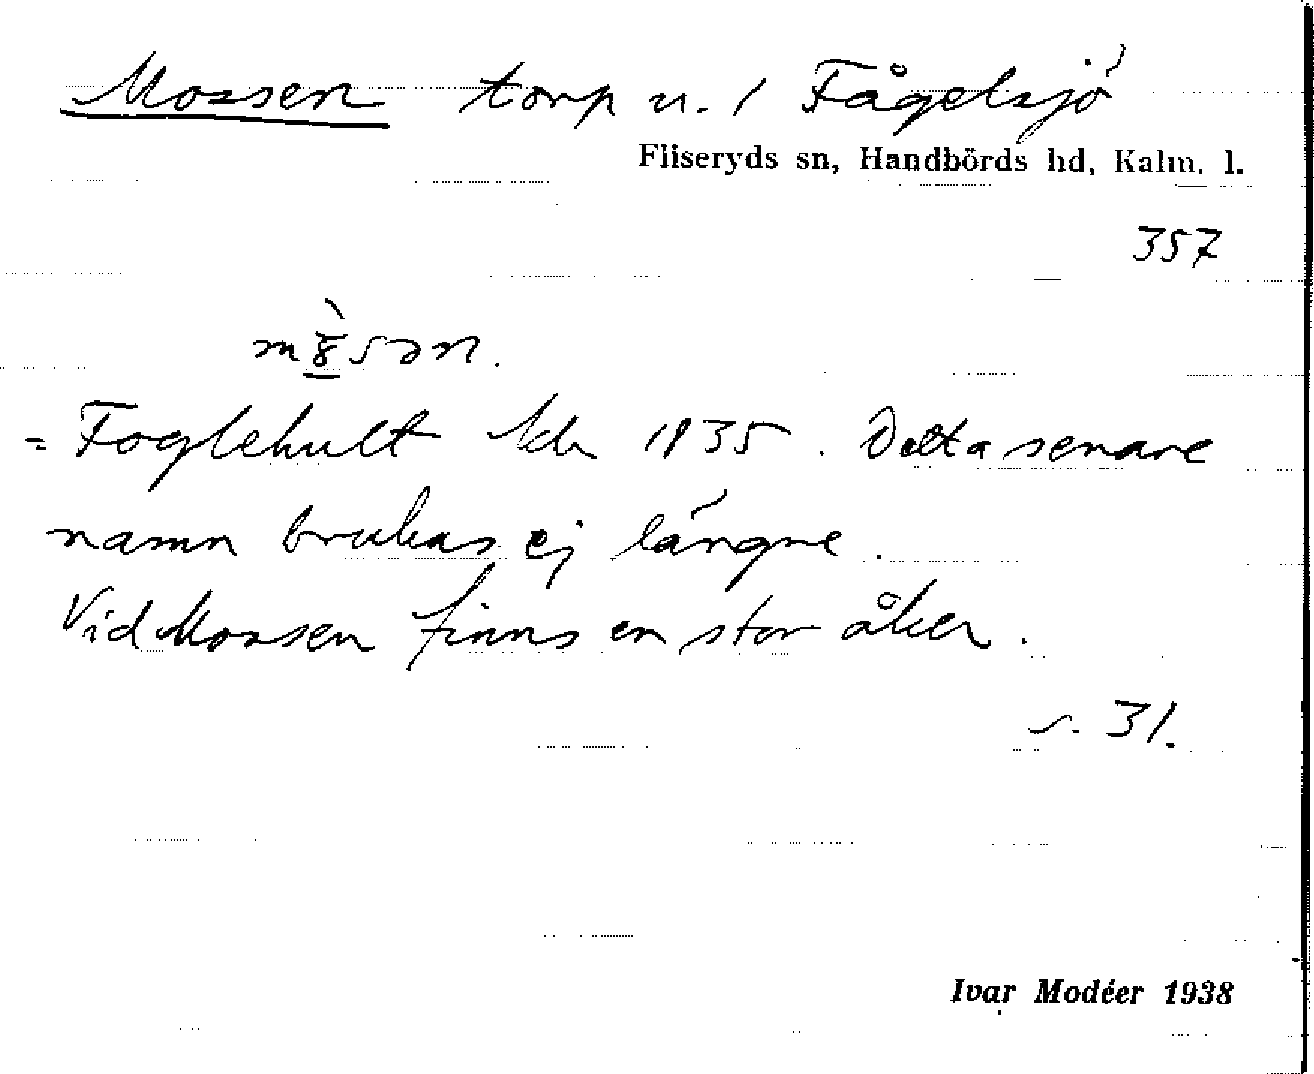 Mossen torp u. 1 Fågelsjö
Fliseryds sn, Handbörds hd, Kalm. l.
357
= Foglehult kb 1835. Detta senare
namn brukas ej längre.
Vid Mossen finns en stor åker.
s. 31.
Ivar Modéer 1938